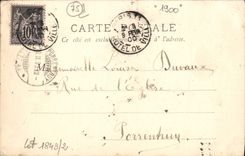 75
"1900"
CARTE POSTALE
Ce côté est exclusivement réservé à l'adresse.
PARIS
HOTEL DE VILLE
10
Mademoiselle Louise Duvaux
Rue de l'Eglise
Porrentruy
Lot 1849/2